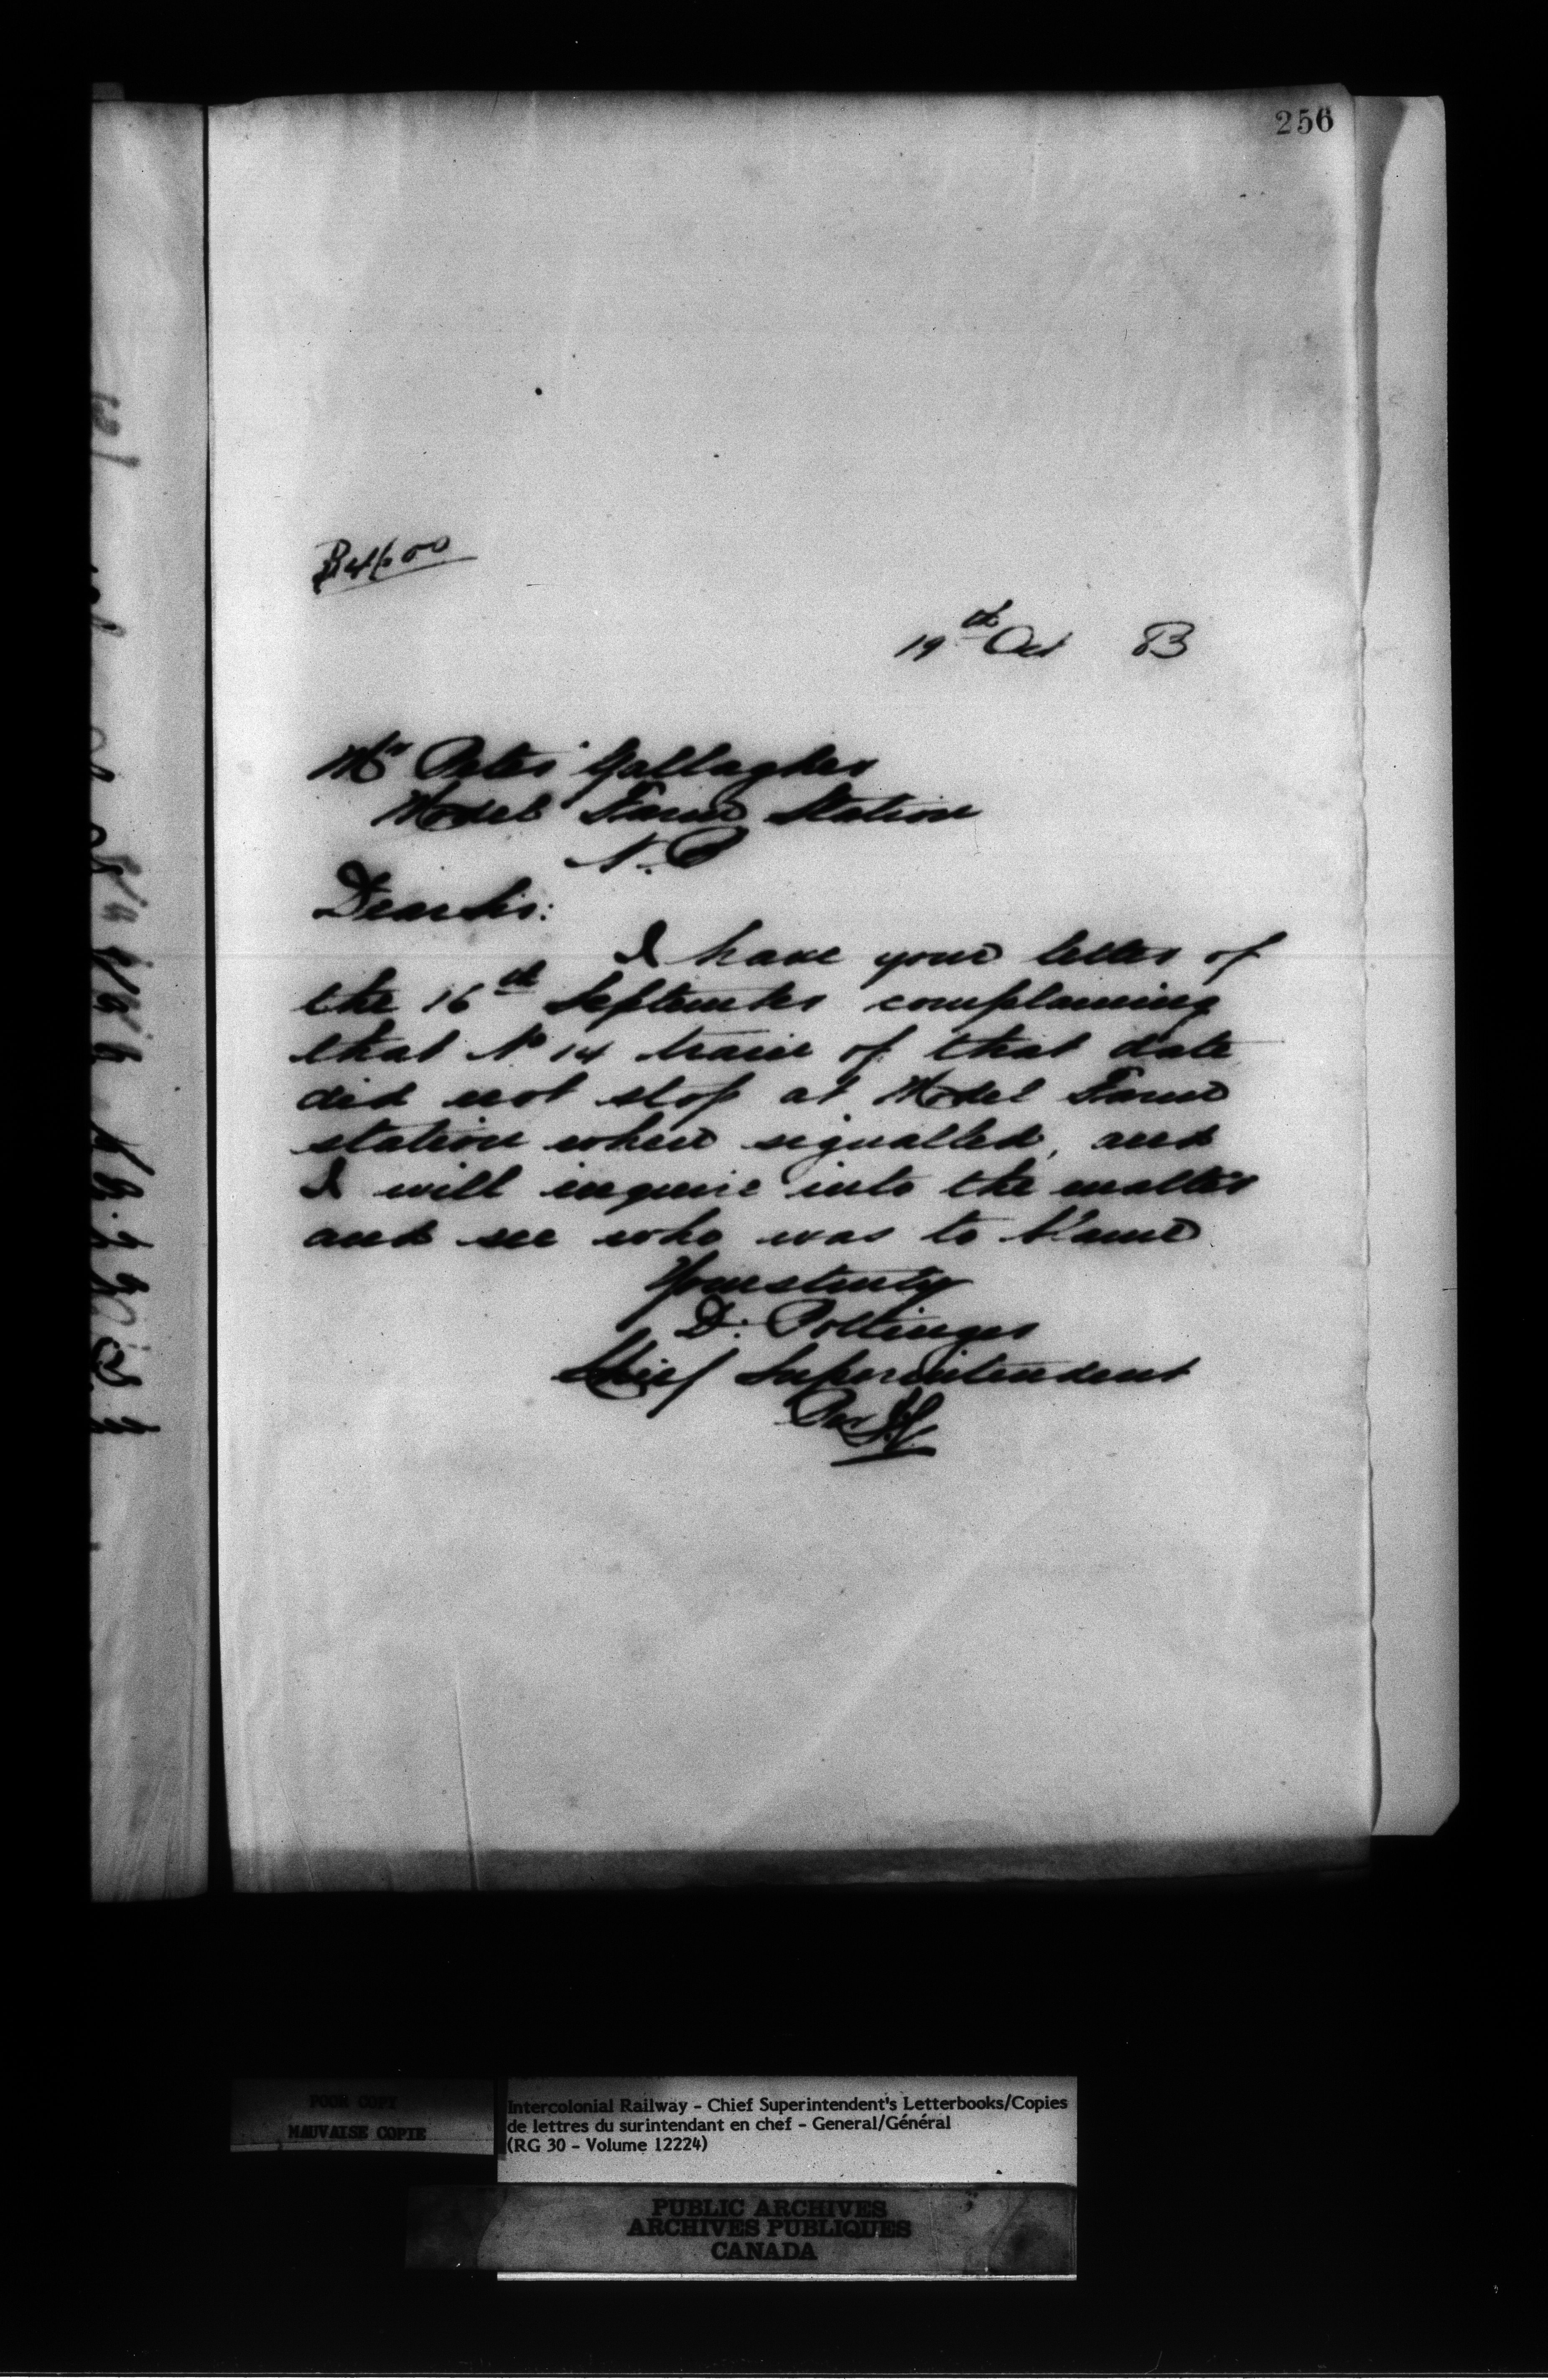 256
19th Oct 83
Mr Peter Gallagher
Model Farm Station
N.B
Dear Sir:
I have your letter of
the 16th September complaining
that No 14 train of that date
did not stop at Model Farm
station when signalled, and
I will inquire into the matter
and see who was to blame
Yours truly
D. Pottinger
Chief Superintendent
Per
POOR COPY
MAUVAISE COPIE
Intercolonial Railway - Chief Superintendent's Letterbooks/Copies
de lettres du surintendant en chef - General/Général
(RG 30 - Volume 12224)
PUBLIC ARCHIVES
ARCHIVES PUBLIQUES
CANADA